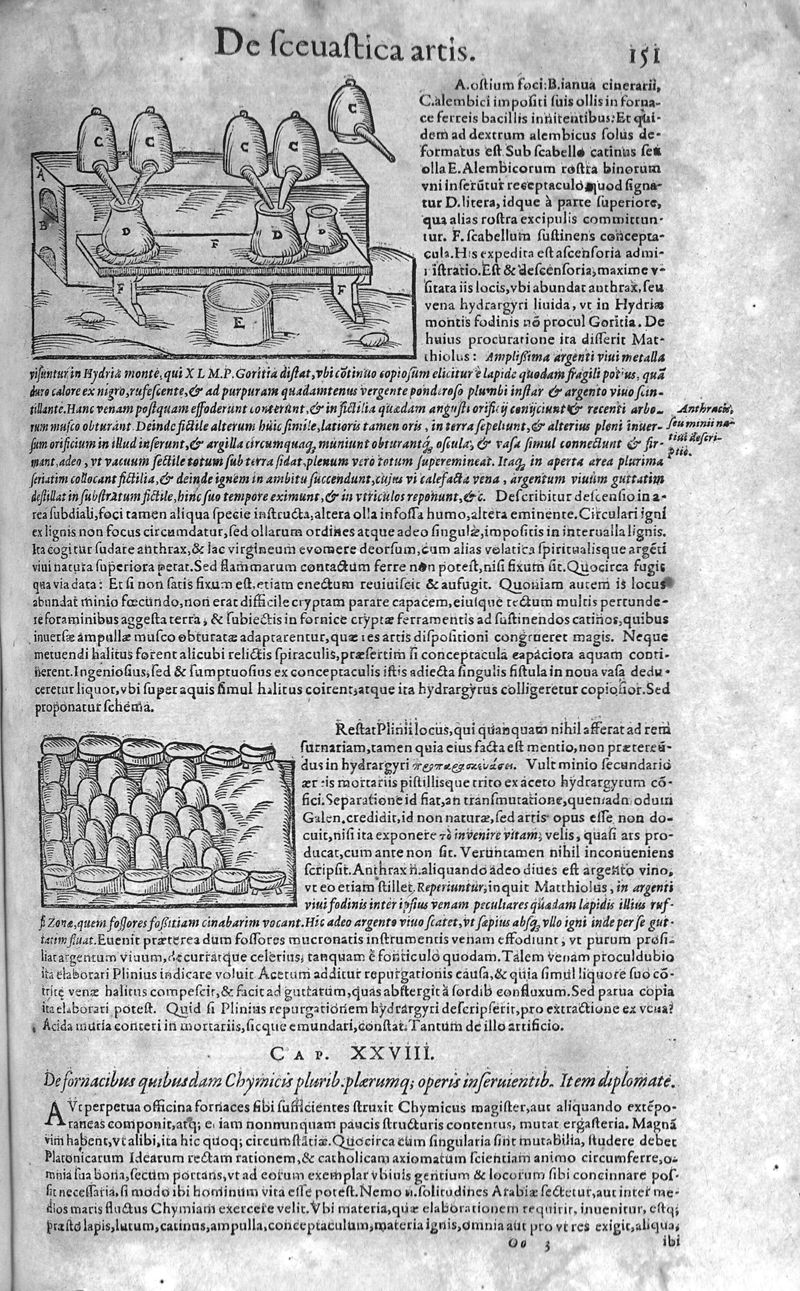 De sceuastica artis. 151
A. ostium foci: B. ianua cinerarii,
C. alembici impositi suis ollis in forna-
ce ferreis bacillis innitentibus: Et qui-
dem ad dextrum alembicus solus de-
formatus est. Sub scabello catinus seu
olla E. Alembicorum rostra binorum
vni inserũtur receptaculo quod signa-
tur D. litera, idque à parte superiore,
qua alias rostra excipulis committun-
tur. F. scabellum sustinens concepta-
cula. His expedita est ascensoria admi-
istratio. Est & descensoria, maxime v-
sitata iis locis, vbi abundat anthrax, seu
vena hydrargyri liuida, vt in Hydriæ
montis fodinis nõ procul Goritia. De
huius procuratione ita disserit Mat-
thiolus: Amplissima argenti viui metalla
visuntur in Hydriæ monte, qui X L M. P. Goritia distat, vbi cõtinuo copiosum elicitur è lapide quodam fragili potius, quã
duro calore ex nigro, rufescente, & ad purpuram quadamtenus vergente ponderoso plumbi instar & argento viuo scin-
tillante. Hanc venam postquam effoderunt conterunt, & in fictilia quædam angusti orificij conijciunt & recenti arbo-
rum musco obturant. Deinde fictile alterum huic simile, latioris tamen oris, in terra sepeliunt, & alterius pleni inuer-
sum orificium in illud inserunt, & argilla circumquaq; muniunt obturantq́; oscula, & vasa simul connectunt & fir-
mant, adeo, vt vacuum fictile totum sub terra sidat, plenum vero totum supereminat. Itaq; in aperta area plurima
seriatim collocant fictilia, & deinde ignem in ambitu succendunt, cujus vi calefacta vena, argentum viuũm guttatim
destillat in substratum fictile, hinc suo tempore eximunt, & in vtriculos reponunt, &c. Describitur descensio in a-
rea subdiali, foci tamen aliqua specie instructa, altera olla infossa humo, altera eminente. Circulari igni
ex lignis non focus circumdatur, sed ollarum ordines atque adeo singulæ, impositis in interualla lignis.
Ita cogitur sudare anthrax, & lac virgineum euomere deorsum, cum alias volatica spiritualisque argẽti
viui natura superiora petat. Sed flammarum contactum ferre non potest, nisi fixum sit. Quocirca fugit
qua via data: Et si non satis fixum est, etiam enectum reuiuiscit & aufugit. Quoniam autem is locus
abundat minio fœcundo, non erat difficile cryptam parare capacem, eiusque tectum multis pertunde-
re foraminibus aggesta terra, & subiectis in fornice cryptæ ferramentis ad sustinendos catinos, quibus
inuersæ ampullæ musco obturatæ adaptarentur, quæ res artis dispositioni congrueret magis. Neque
metuendi halitus forent alicubi relictis spiraculis, præsertim si conceptacula capaciora aquam conti-
nerent. Ingeniosius, sed & sumptuosius ex conceptaculis istis adiecta singulis fistula in noua vasa dedu-
ceretur liquor, vbi super aquis simul halitus coirent, atque ita hydrargyrus colligeretur copiosior. Sed
proponatur schema.
Anthracis,
seu minii na-
tiui descri-
ptio.
Restat Plinii locus, qui quanquam nihil afferat ad rem
furnariam, tamen quia eius facta est mentio, non prætereũ-
dus in hydrargyri. Vult minio secundario
æreis mortariis pistillisque trito ex aceto hydrargyrum cõ-
fici. Separatione id fiat, an transmutatione, quemadmodum
Galen. credidit, id non naturæ, sed artis opus esse, non do-
cuit, nisi ita exponere τὸ invenire vitam, velis, quasi ars pro-
ducat, cum ante non sit. Veruntamen nihil inconueniens
scripsit. Anthrax n. aliquando adeo diues est argento viuo,
vt eo etiam stillet. Reperiuntur, inquit Matthiolus, in argenti
viui fodinis inter ipsius venam peculiares quædam lapidis illius ruf-
fi Zonæ, quem fossores fossitiam cinabarim vocant. Hic adeo argento viuo scatet, vt sæpius absq; vllo igni inde per se gut-
tatim fluat. Euenit præterea dum fossores mucronatis instrumentis venam effodiunt, vt purum prosi-
liat argentum viuum, decurratque celerius, tanquam è fonticulo quodam. Talem venam proculdubio
ita elaborari Plinius indicare voluit. Acetum additur repurgationis causa, & quia simul liquore suo cõ-
tritę venæ halitus compescit, & facit ad guttarum, quas abstergit à sordib. confluxum. Sed parua copia
ita elaborari potest. Quid si Plinius repurgationem hydrargyri descripserit, pro extractione ex vena?
Acida muria conteri in mortariis, sicque emundari, constat. Tantum de illo artificio.
CAP. XXVIII.
De fornacibus quibusdam Chymicis plurib. plærumq; operis inseruientib. Item diplomate.
AVt perpetua officina fornaces sibi sufficientes struxit Chymicus magister, aut aliquando extẽpo-
raneas componit, atq; etiam nonnunquam paucis structuris contentus, mutat ergasteria. Magnã
vim habent, vt alibi, ita hic quoq; circumstãtiæ. Quocirca cum singularia sint mutabilia, studere debet
Platonicarum Idearum rectam rationem, & catholicam axiomatum scientiam animo circumferre, o-
mnia sua bona, secum portans, vt ad eorum exemplar vbiuis gentium & locorum sibi concinnare pos-
sit necessaria, si modo ibi hominum vita esse potest. Nemo n. solitudines Arabiæ sectetur, aut inter me-
dios maris fluctus Chymiam exercere velit. Vbi materia, quæ elaborationem requirit, inuenitur, estq;
præsto lapis, lutum, catinus, ampulla, conceptaculum, materia ignis, omnia aut pro vt res exigit, aliqua,
Oo 3 ibi
A
B
C
C
C
C
C
D
D
D
F
F
F
E